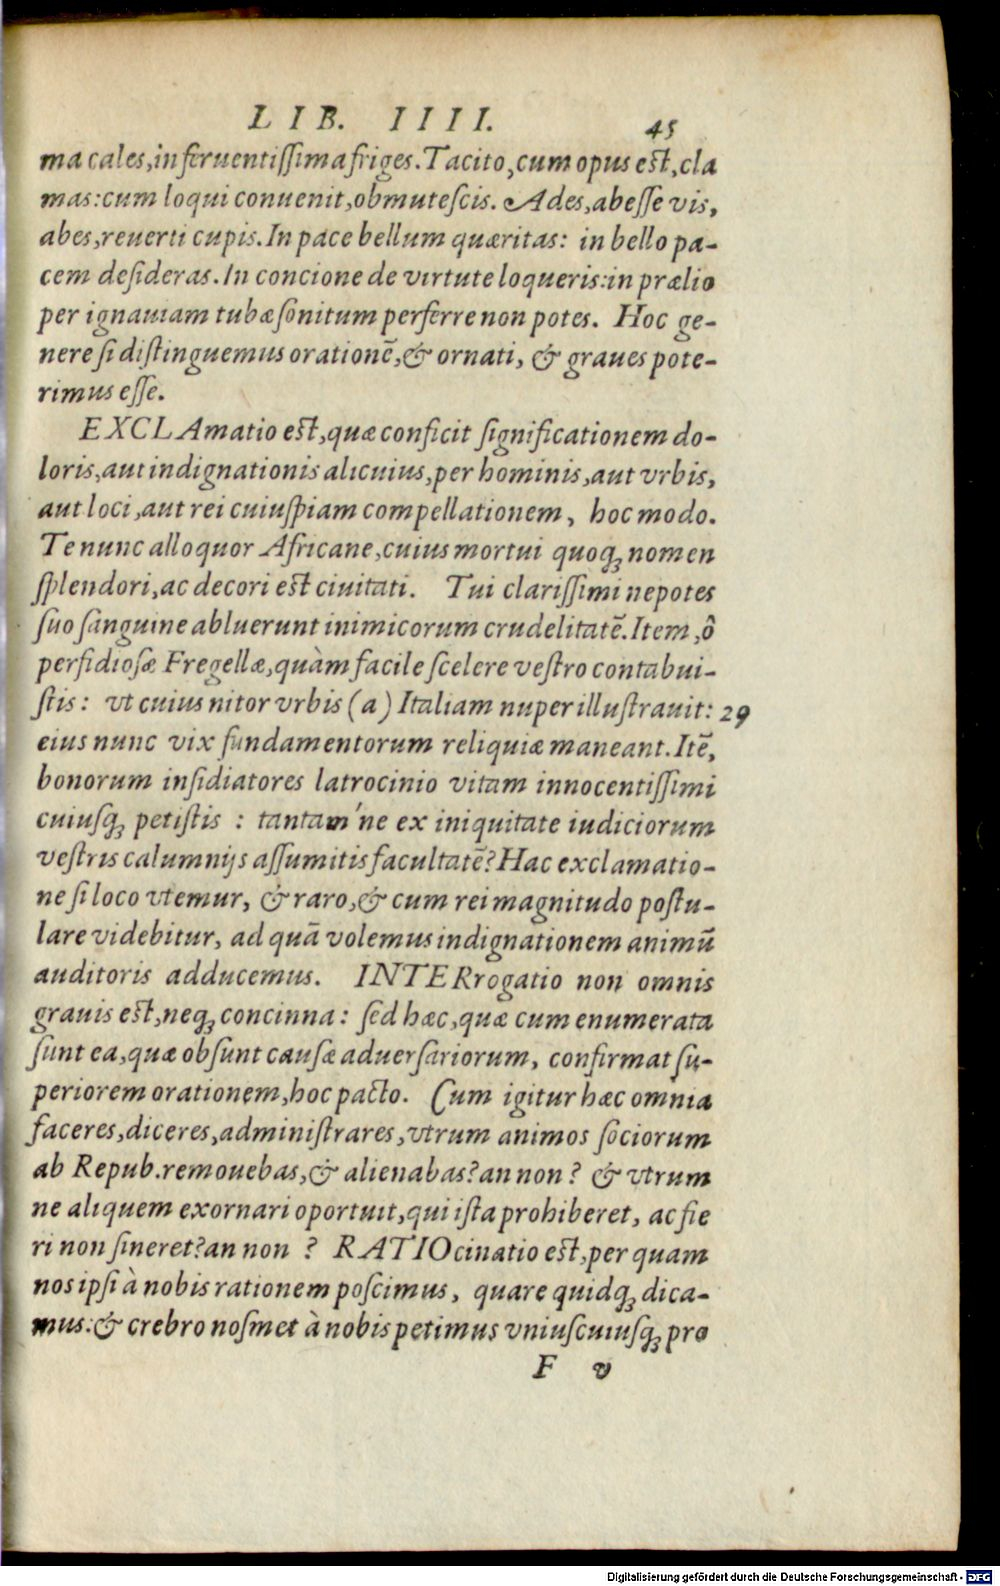 LIB. IIII. 45
ma cales, in feruentissima friges. Tacito, cum opus est, cla
mas: cum loqui conuenit, obmutescis. Ades, abesse vis,
abes, reuerti cupis. In pace bellum quæritas: in bello pa-
cem desideras. In concione de virtute loqueris: in prælio
per ignauiam tubæ sonitum perferre non potes. Hoc ge-
nere si distinguemus orationē, & ornati, & graues pote-
rimus esse.
EXCLAmatio est, quæ conficit significationem do-
loris, aut indignationis alicuius, per hominis, aut vrbis,
aut loci, aut rei cuiuspiam compellationem, hoc modo.
Te nunc alloquor Africane, cuius mortui quoq; nomen
splendori, ac decori est ciuitati. Tui clarissimi nepotes
suo sanguine abluerunt inimicorum crudelitatē. Item, ô
perfidiosæ Fregellæ, quàm facile scelere vestro contabui-
stis: vt cuius nitor vrbis (a) Italiam nuper illustrauit: 29
eius nunc vix fundamentorum reliquiæ maneant. Itē,
bonorum insidiatores latrocinio vitam innocentissimi
cuiusq; petistis: tantam'ne ex iniquitate iudiciorum
vestris calumnijs assumitis facultatē? Hac exclamatio-
ne si loco vtemur, & raro, & cum rei magnitudo postu-
lare videbitur, ad quā volemus indignationem animū
auditoris adducemus. INTERrogatio non omnis
grauis est, neq; concinna: sed hæc, quæ cum enumerata
sunt ea, quæ obsunt causæ aduersariorum, confirmat su-
periorem orationem, hoc pacto. Cum igitur hæc omnia
faceres, diceres, administrares, vtrum animos sociorum
ab Repub. remouebas, & alienabas? an non? & vtrum
ne aliquem exornari oportuit, qui ista prohiberet, ac fie
ri non sineret? an non? RATIOcinatio est, per quam
nos ipsi à nobis rationem poscimus, quare quidq; dica-
mus: & crebro nosmet à nobis petimus vniuscuiusq; pro
F v
Digitalisierung gefördert durch die Deutsche Forschungsgemeinschaft - DFG